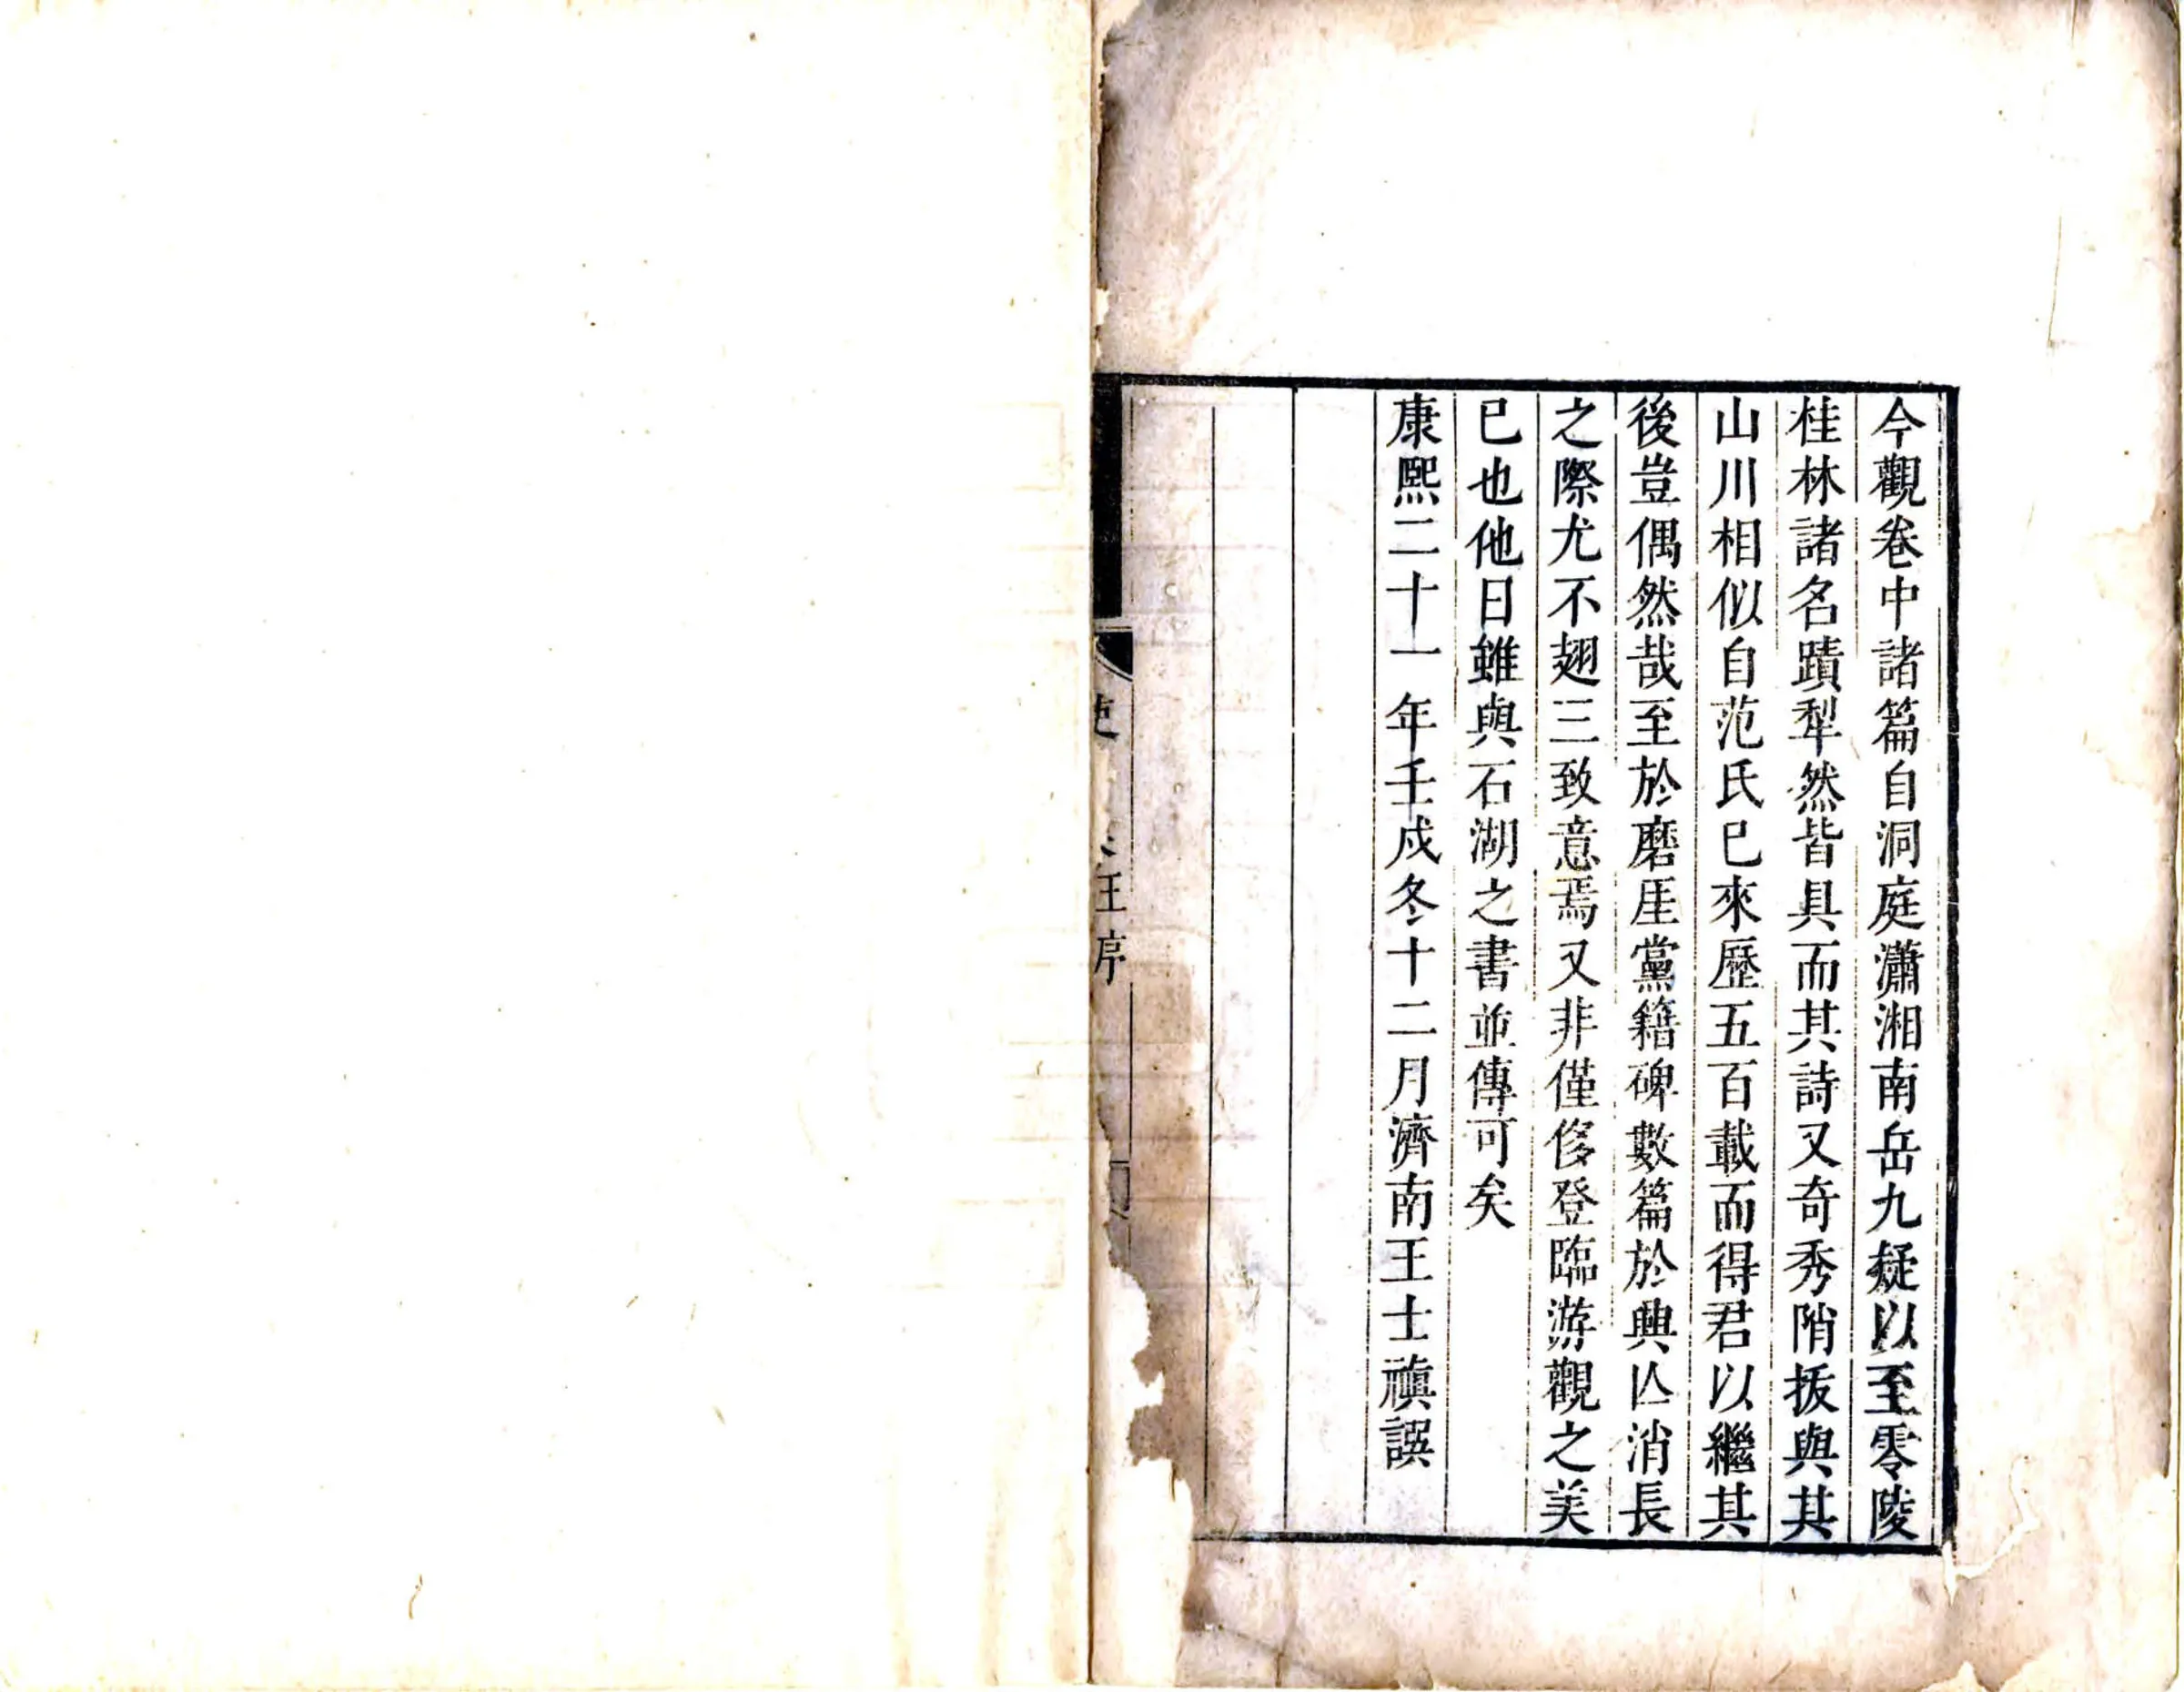 今觀卷中諸篇自洞庭瀟湘南岳九疑以至零陵
桂林諸名蹟犁然皆具而其詩又奇秀陗拔與其
山川相似自范氏已來歷五百載而得君以繼其
後豈偶然哉至於磨厓黨籍碑數篇於興亾消長
之際尤不翅三致意焉又非僅侈登臨游觀之美
已也他日雖與石湖之書並傳可矣
康熙二十一年壬戌冬十二月濟南王士禛譔
王序